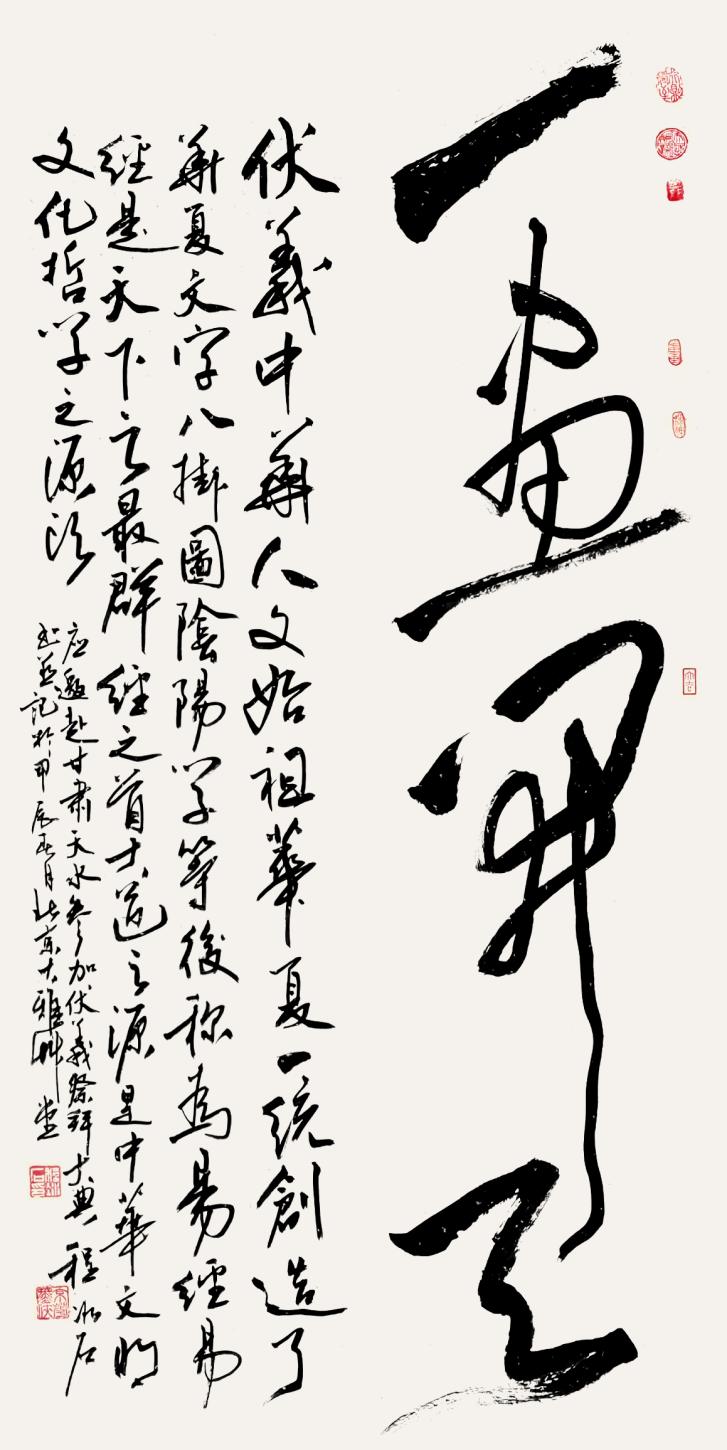 一画開天
伏羲中華人文始祖華夏一統創造了
華夏文字八掛圖陰陽学等後称為易經易
經是天下之最群經之首大道之源是中華文明
文化哲学之源法
应邀赴甘肅天水参加伏羲祭拜大典 程冰石
书并記於甲辰五月北京大雅草堂